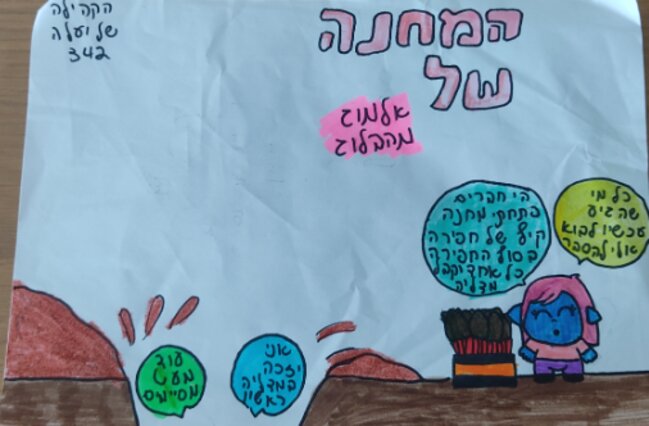 הקהילה
של יעלה
342
המחנה
של
אלמוג
מהבלוג
היי חברים
פתחתי מחנה
קיץ של חפירה
בסוף החפירה
כל אחד יקבל
מדליה
כל מי
שהגיע
עכשיו לבוא
אולי להסבר
עוד
מעט
מסיימים
אני
יזכה
במדליה
ראשון